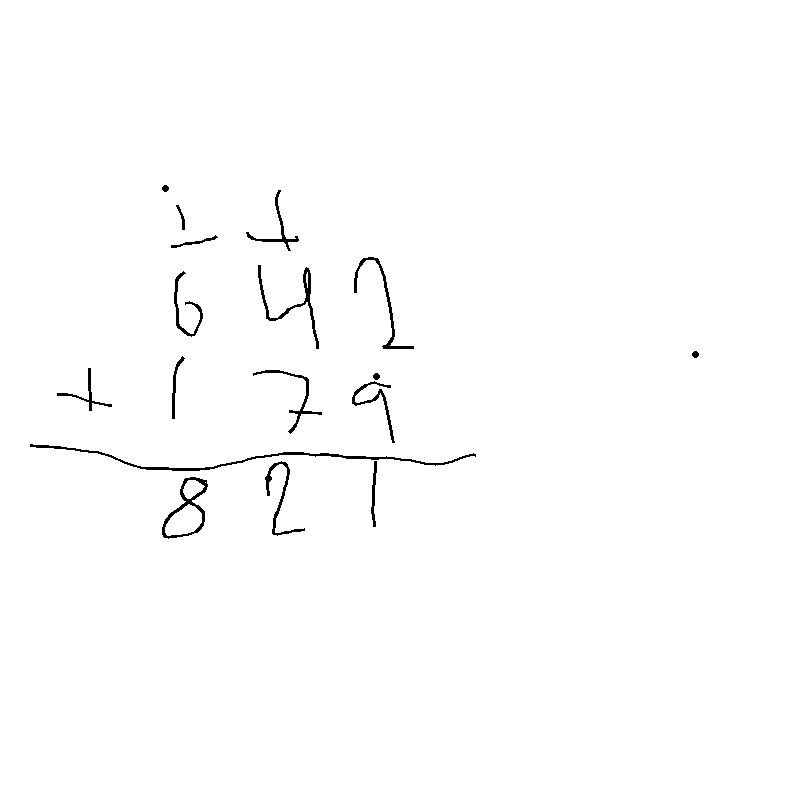 1 1
642
+ 179
821